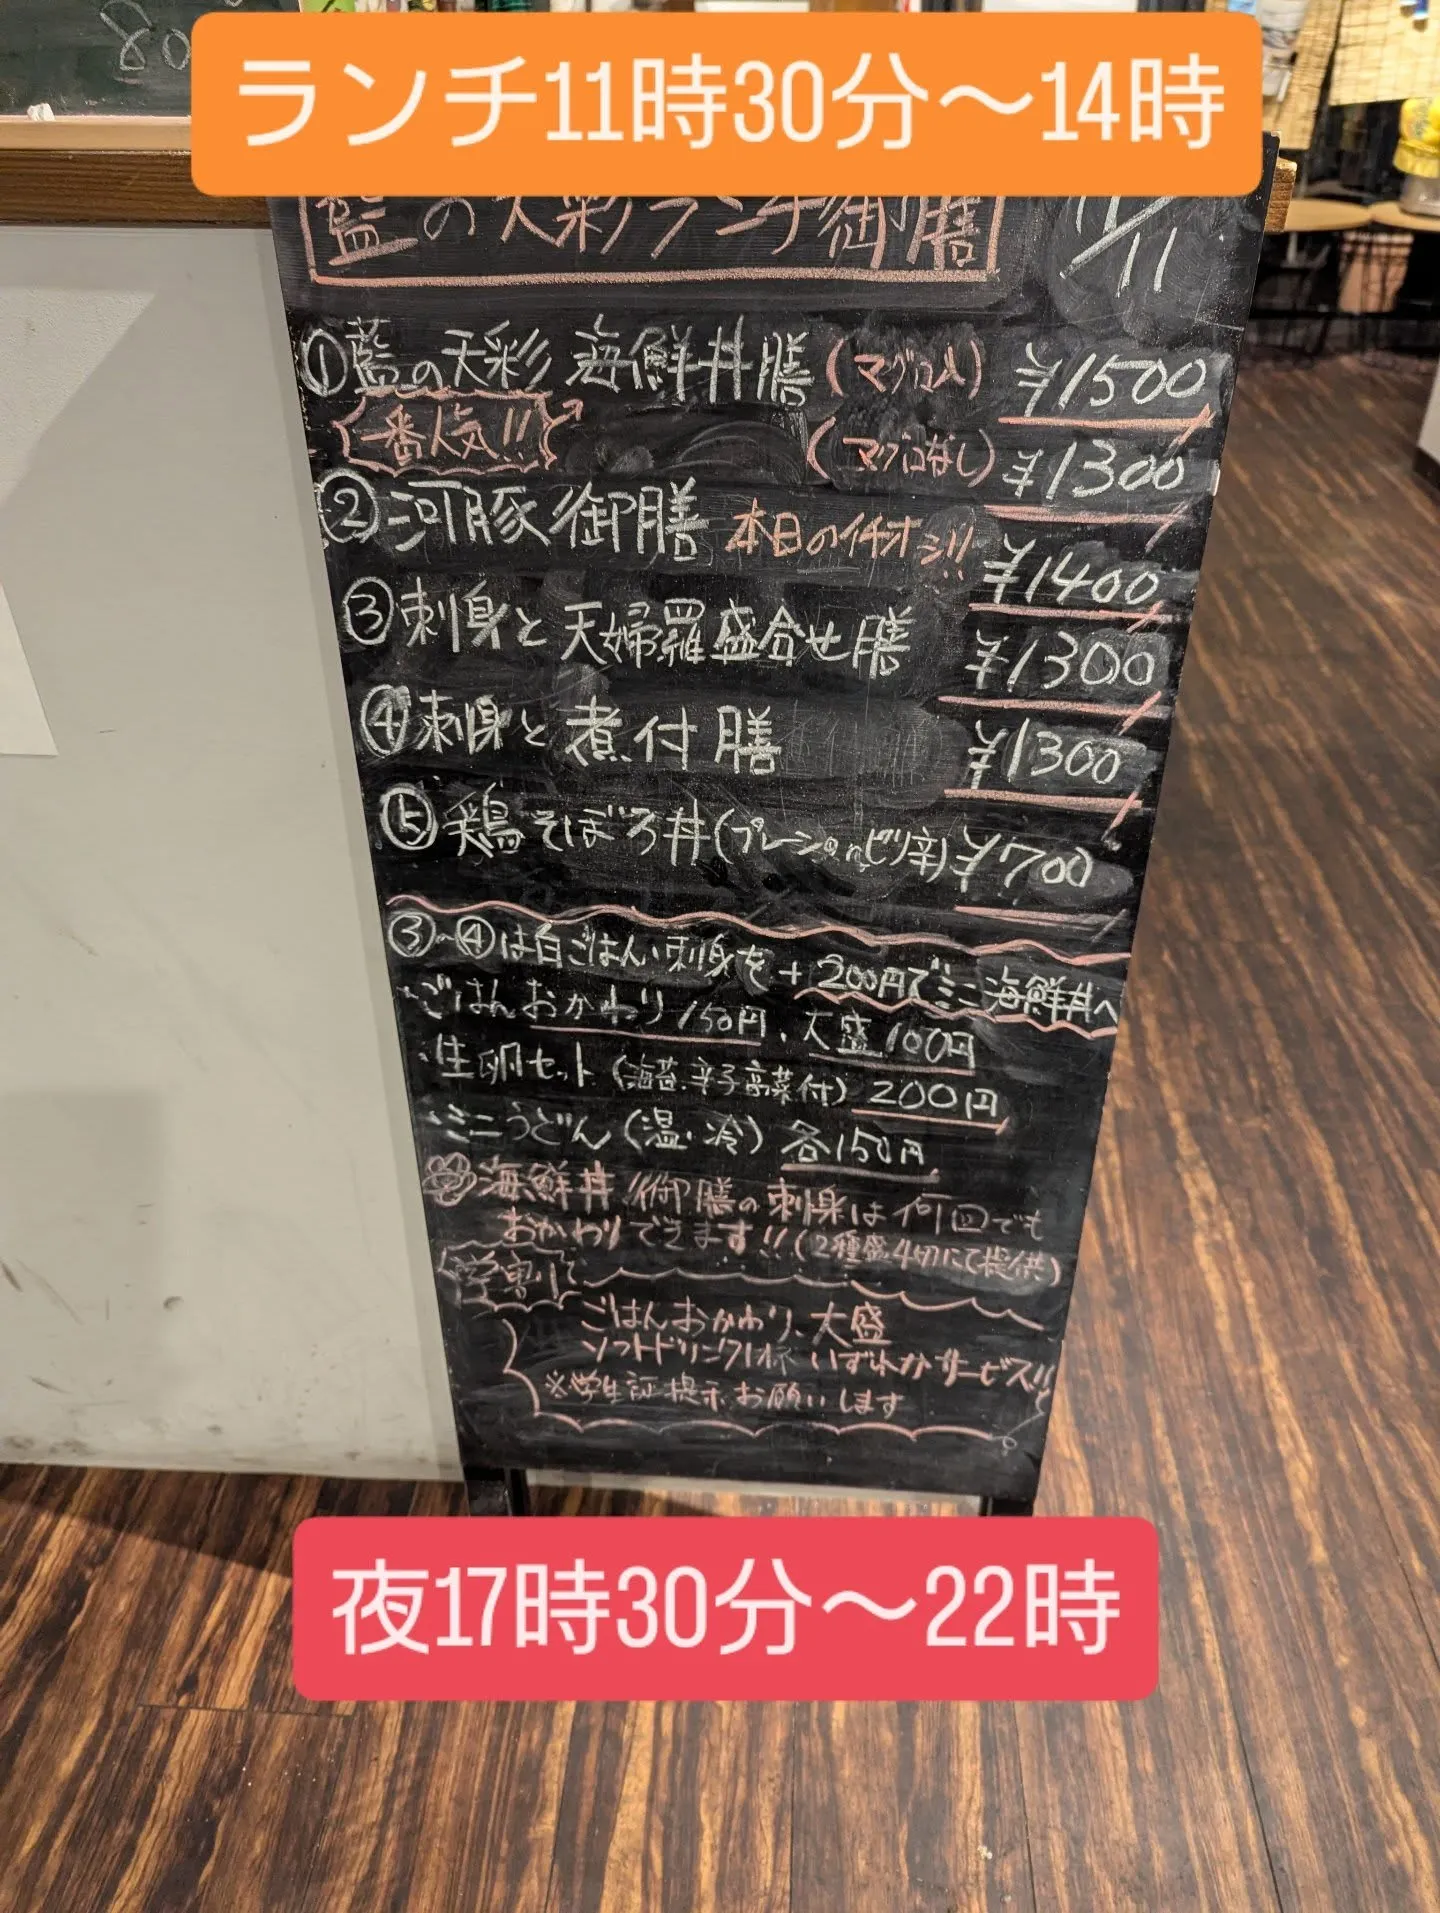 80
ランチ11時30分〜14時
藍の天彩ランチ御膳
11/11
①藍の天彩 海鮮丼膳(マグロ入) ¥1500
一番人気!! (マグロなし) ¥1300
②河豚御膳 本日のイチオシ!! ¥1400
③刺身と天婦羅盛合せ膳 ¥1300
④刺身と煮付膳 ¥1300
⑤鶏そぼろ丼(プレーンorピリ辛) ¥700
③〜④は白ごはん、刺身を+200円でミニ海鮮丼へ
・ごはんおかわり150円、大盛100円
・生卵セット(海苔、辛子高菜付)200円
・ミニうどん(温・冷)各150円
海鮮丼、御膳の刺身は何回でも
おかわりできます!!(2種盛4切にて提供)
学割
ごはんおかわり、大盛
ソフトドリンク1杯 いずれかサービス!!
※学生証提示お願いします
夜17時30分〜22時